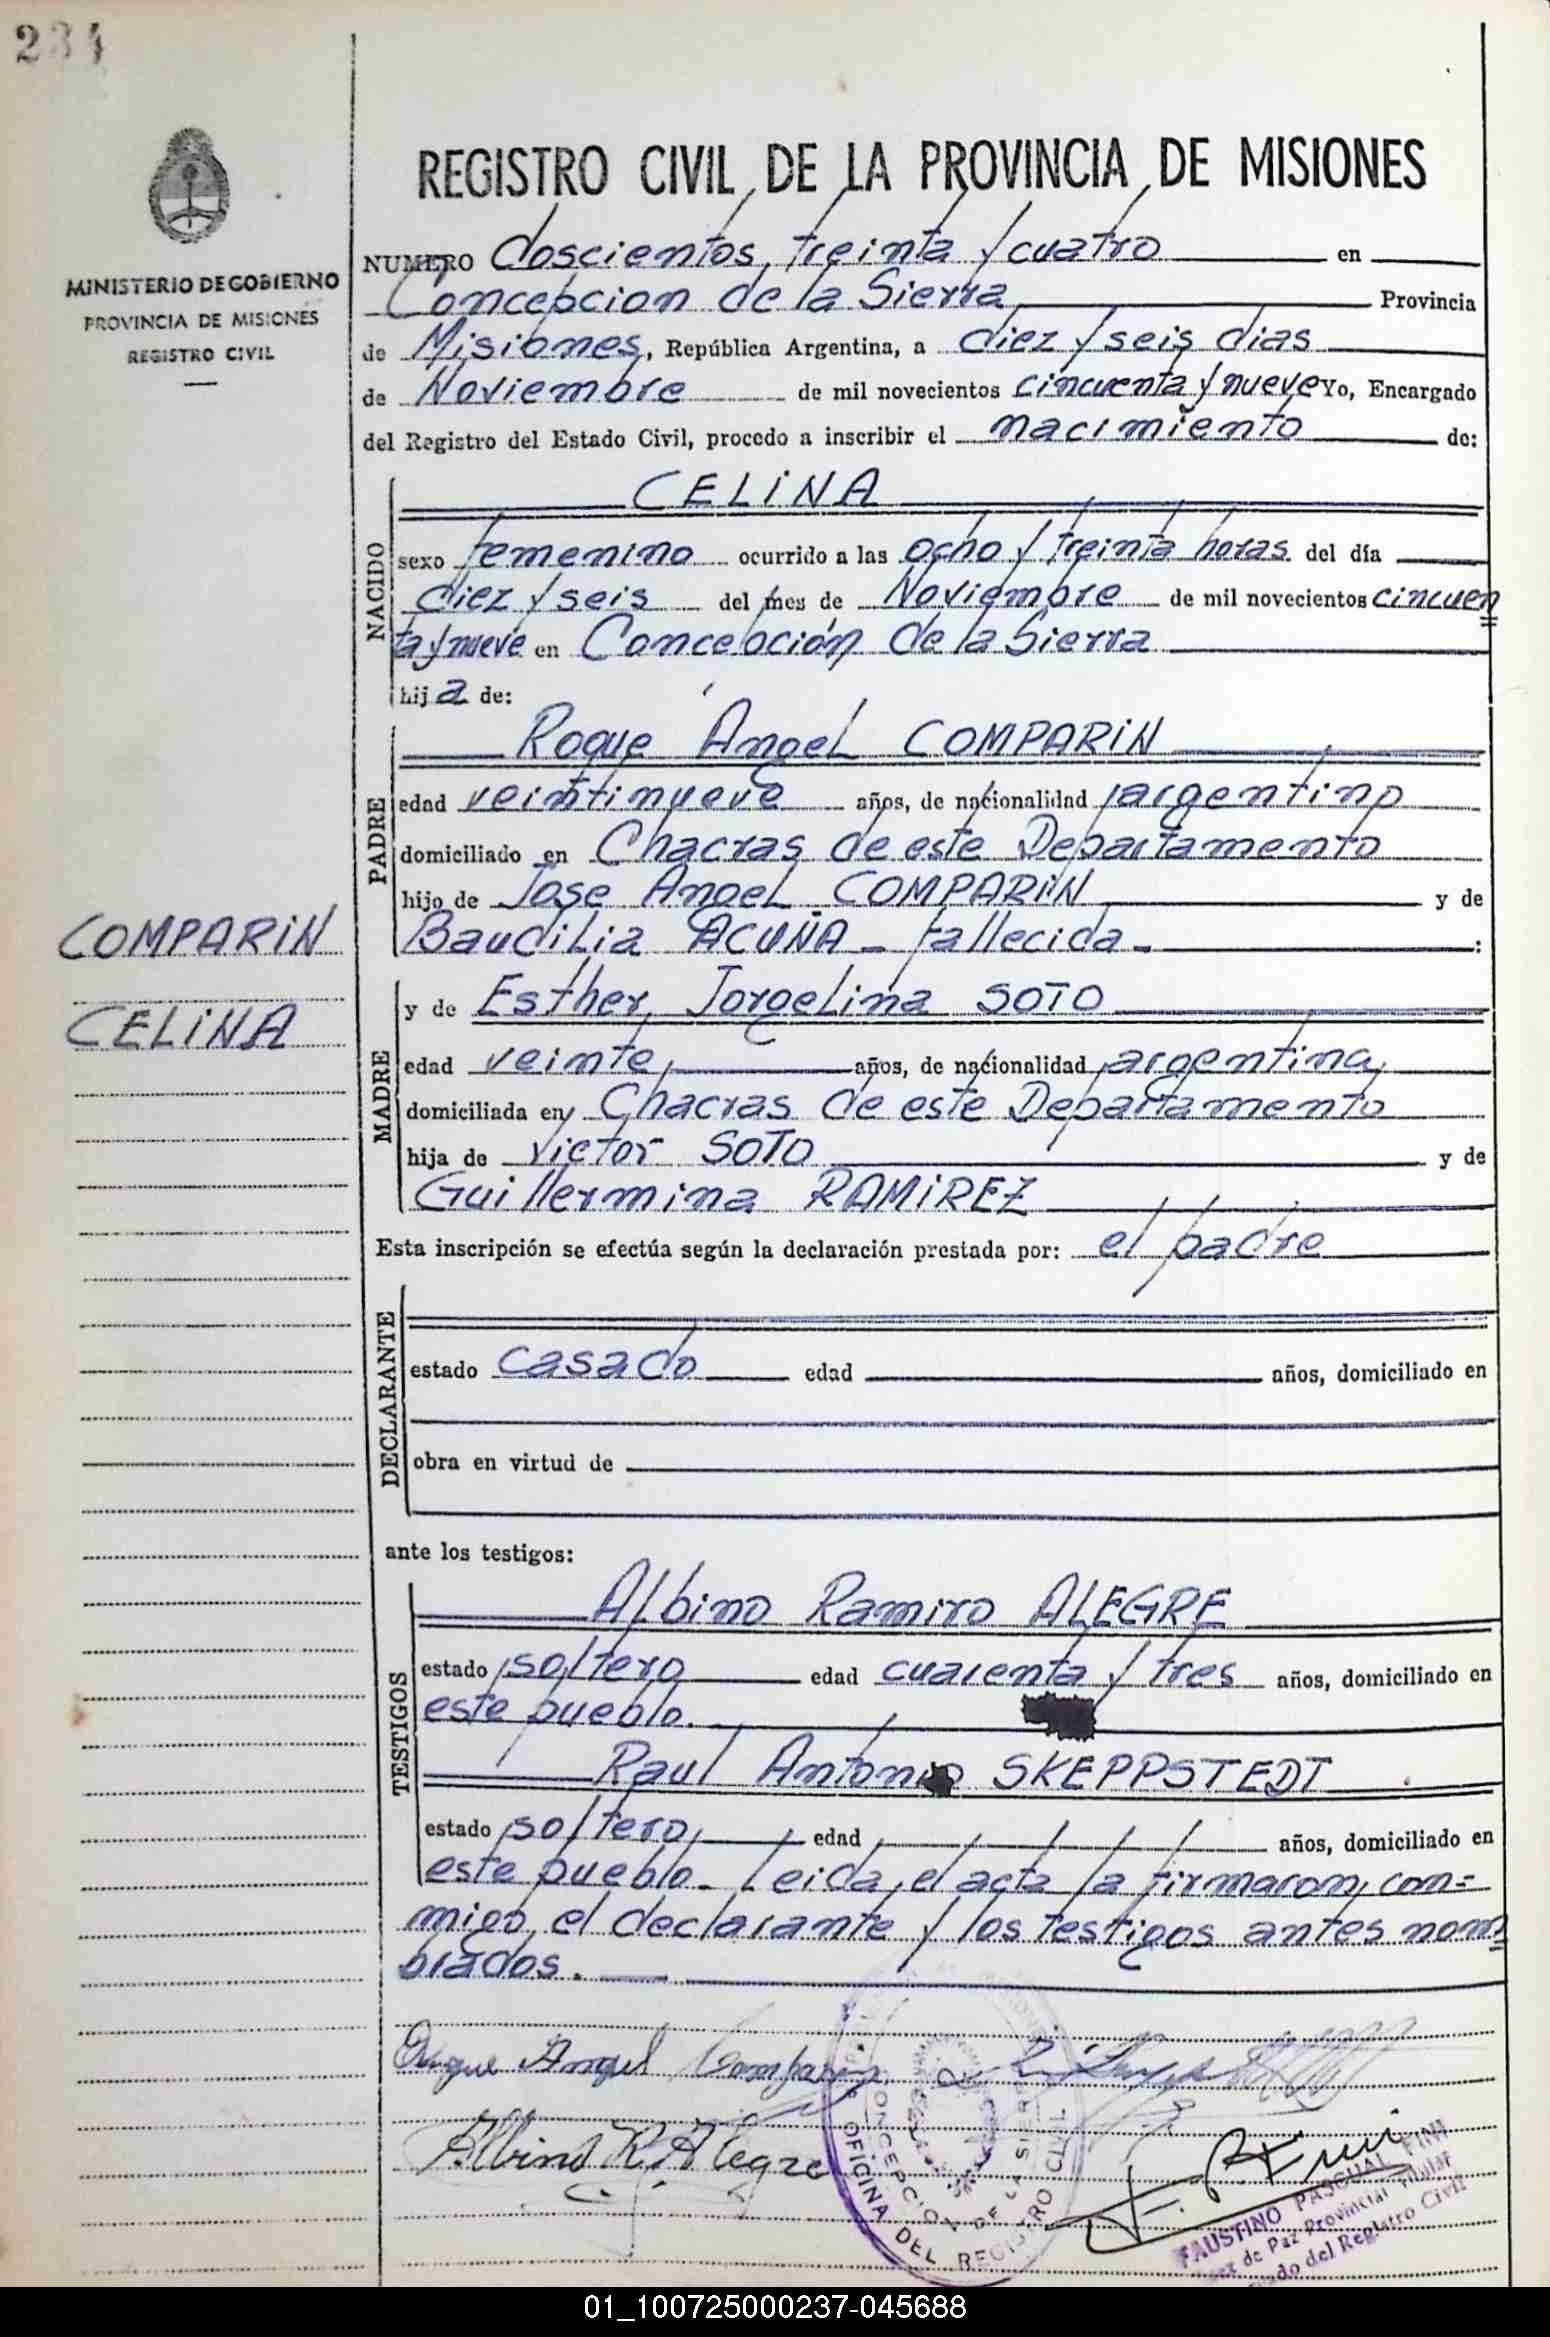 234
MINISTERIO DE GOBIERNO
PROVINCIA DE MISIONES
REGISTRO CIVIL
COMPARIN
CELINA
REGISTRO CIVIL DE LA PROVINCIA DE MISIONES
NUMERO doscientos treinta y cuatro en
Concepcion de la Sierra Provincia
de Misiones, República Argentina, a diez y seis dias
de Noviembre de mil novecientos cincuenta y nueve Yo, Encargado
del Registro del Estado Civil, procedo a inscribir el nacimiento de:
NACIDO
CELINA
sexo femenino ocurrido a las ocho y treinta horas del día
diez y seis del mes de Noviembre de mil novecientos cincuen
ta y nueve en Concepción de la Sierra
hija de:
PADRE
Roque Angel COMPARIN
edad veintinueve años, de nacionalidad argentino
domiciliado en Chacras de este Departamento
hijo de Jose Angel COMPARIN y de
Baudilia ACUÑA - fallecida - :
MADRE
y de Esther Jorgelina SOTO
edad veinte, años, de nacionalidad argentina,
domiciliada en Chacras de este Departamento
hija de Victor SOTO y de
Guillermina RAMIREZ
Esta inscripción se efectúa según la declaración prestada por: el padre
DECLARANTE
estado casado edad años, domiciliado en
obra en virtud de
ante los testigos:
TESTIGOS
Albino Ramiro ALEGRE
estado soltero edad cuarenta y tres años, domiciliado en
este pueblo.
Raul Antonio SKEPPSTEDT
estado soltero, edad años, domiciliado en
este pueblo - Leida el acta la firmaron con=
migo, el declarante y los testigos antes nom
brados.
Roque Angel Comparin
Albino R. Alegre
F. P. Fini
OFICINA DEL REGISTRO CIVIL
CONCEPCION DE LA SIERRA
FAUSTINO PASCUAL FINI
Juez de Paz Provincial Titular
del Registro Civil
01_100725000237-045688